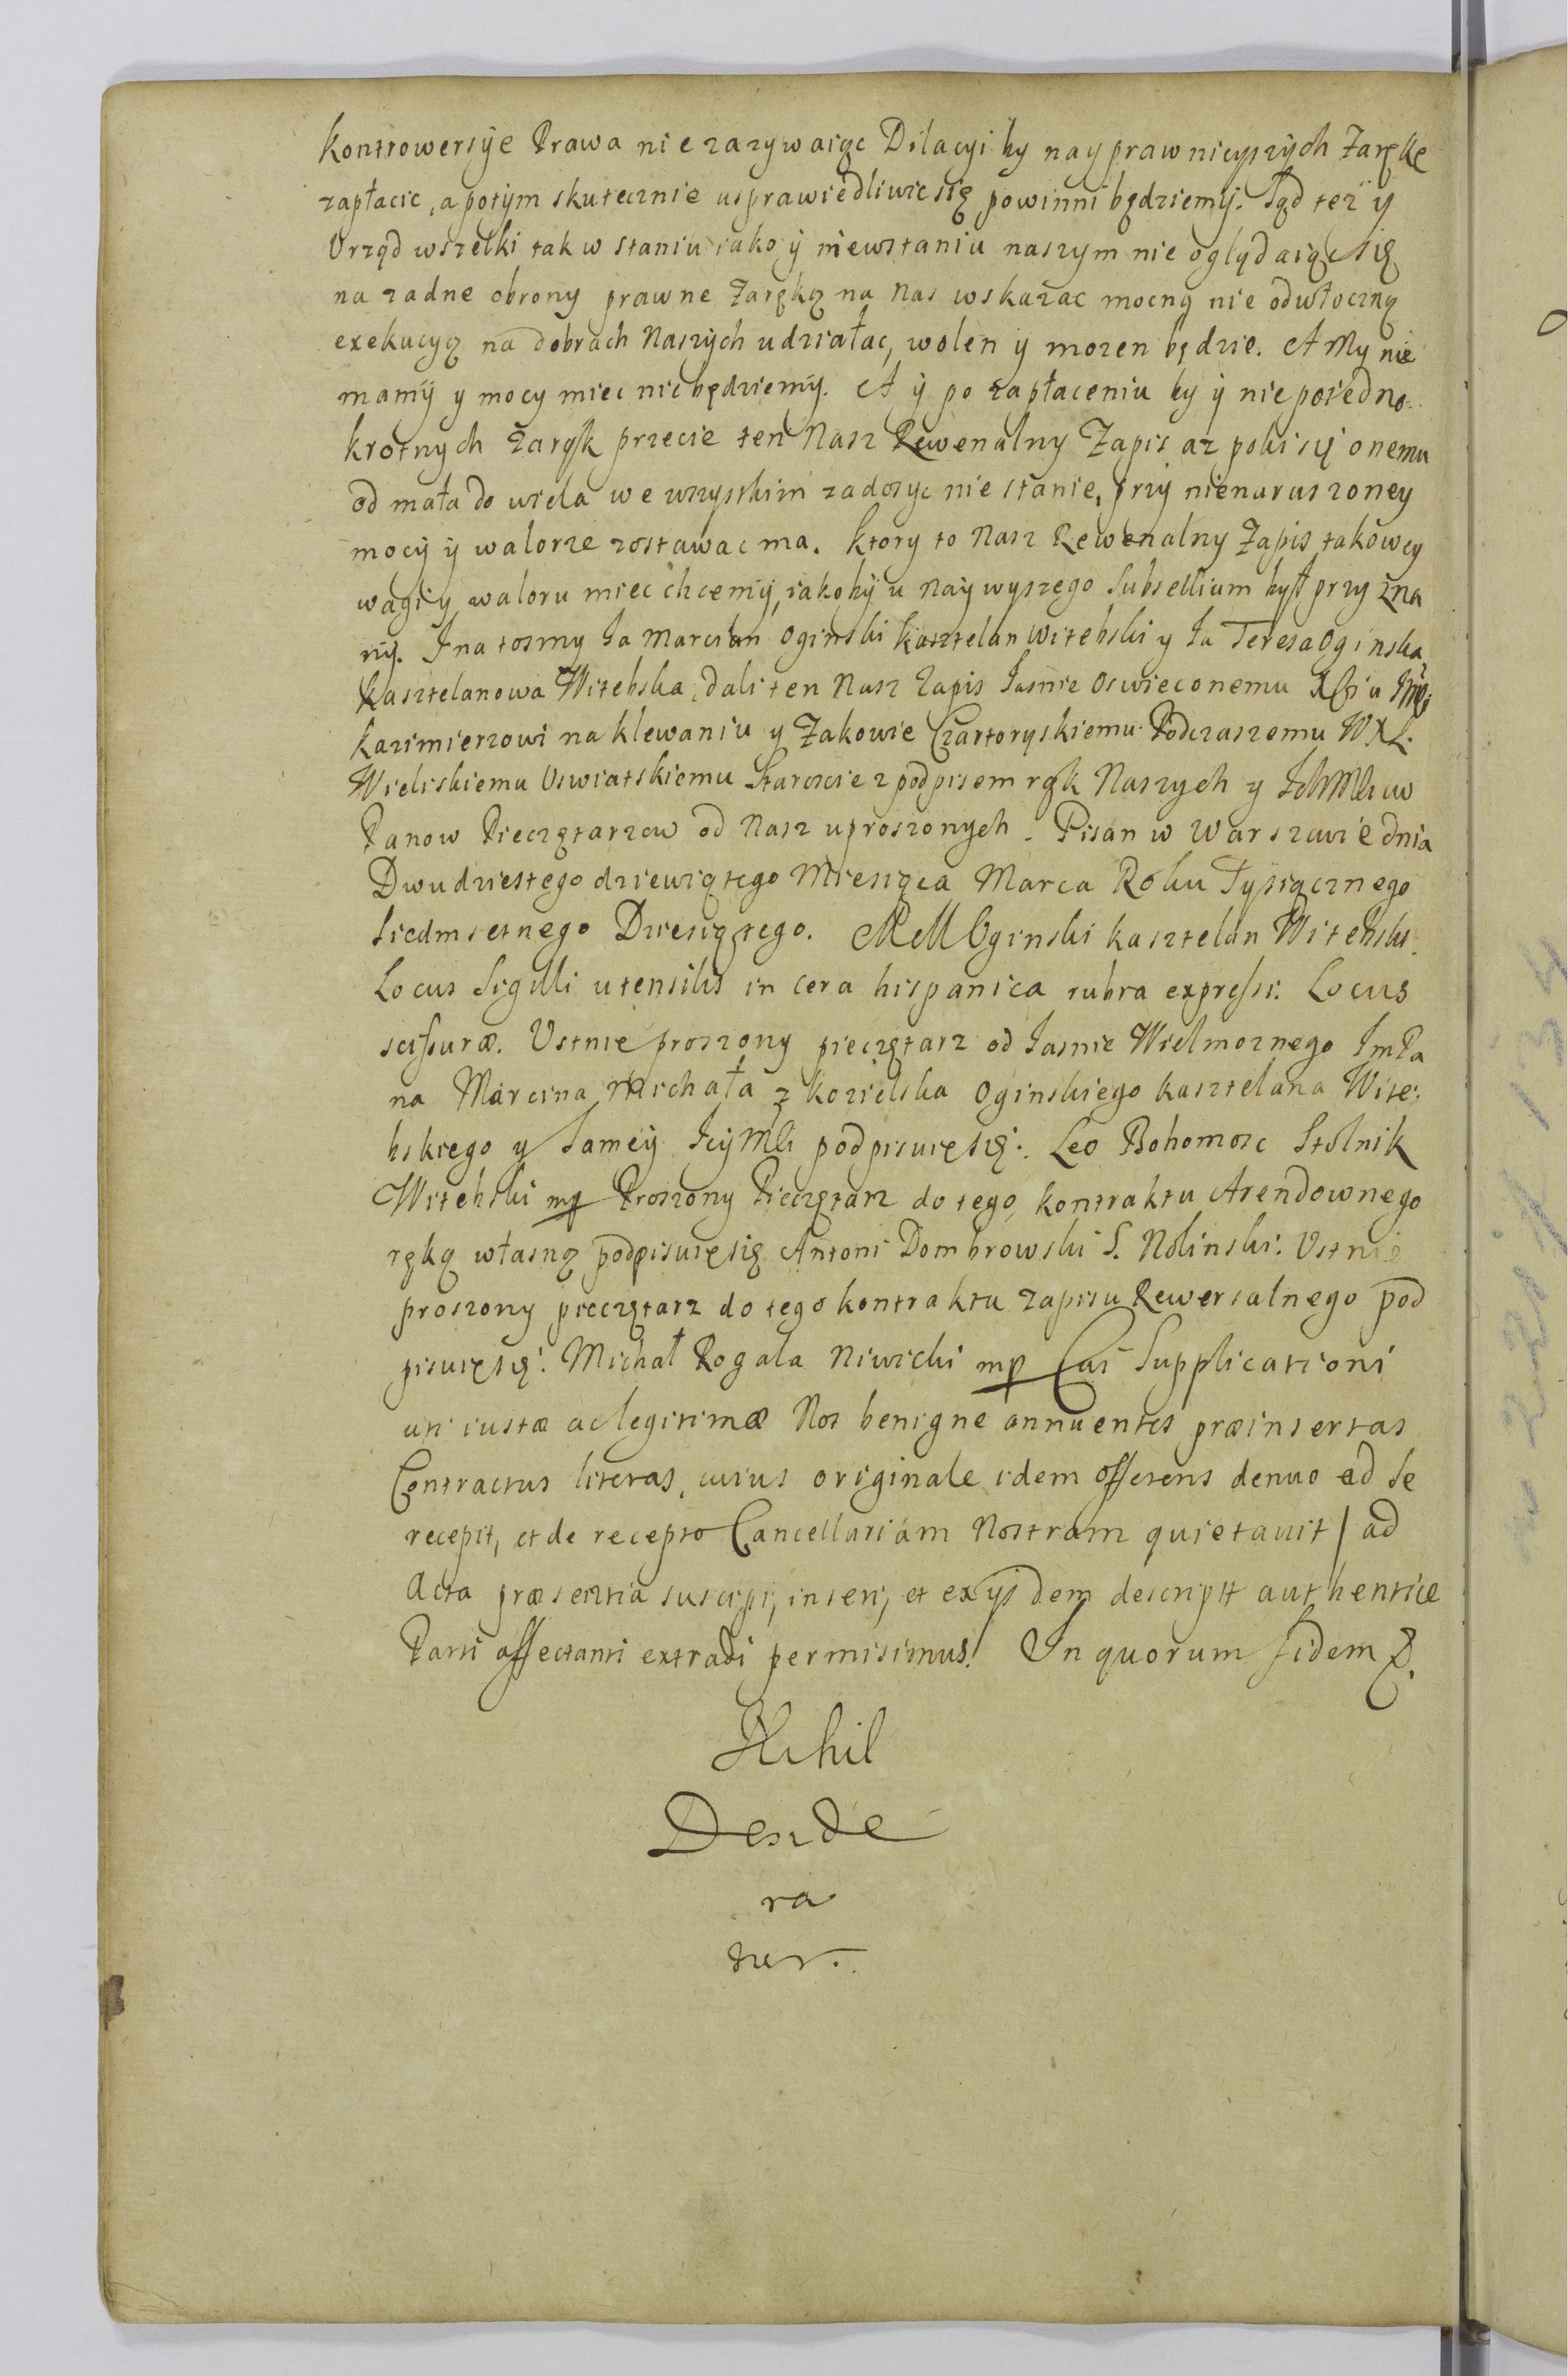 kontrowersÿe Prawa nie zazywaiąc Dilacyi by nayprawnieyszych Zarękę
zapłacic, a potÿm skutecznie usprawiedliwic się powinni będziemÿ. Sąd też ÿ
Vrząd wszelki tak w staniu iako ÿ niewstaniu naszym nie oglądaiąc się
na zadne obrony prawne Zarękę na Nas wskazac mocną nie odwłoczną
exekucyą na dobrach Naszÿch udziałac, wolen ÿ mozen będzie. A My nie
mamÿ y mocy miec nie będziemÿ. A ÿ po zapłaceniu by ÿ nie poiedno
krotnych Zaręk przecie ten Nasz Rewersalny Zapis az poki się onemu
od mała do wiela we wszystkim zadosyc nie stanie, przÿ nienaruszoney
mocÿ ÿ walorze zostawac ma. ktory to Nasz Rewersalny Zapis takowey
wagi y waloru miec chcemÿ, iakobÿ u naÿwyszego Subsellium był przyzna
nÿ. I na tosmy Ja Marcian Oginski kasztelan Witebski y Ja Teresa Oginska
kasztelanowa Witebska, dali ten Nasz Zapis Jasnie Oswieconemu Xciu Jmci
kazimierzowi na klewaniu y Zukowie Czartoryskiemu Podczaszemu WXL.
Wieliskiemu Uswiatskiemu Staroscie z podpisem rąk Naszych y Ichmściuw
Panow Pieczętarzow od Nasz uproszonych. Pisan w Warszawie dnia
Dwudziestego dziewiątego Miesiąca Marca Roku Tysiącznego
Siedmsetnego Dziesiątego. MM Oginski kasztelan Witebski.
Locus Sigilli utensilis in cera hispanica rubra expressi. Locus
scissuræ. Ustnie proszony pieczętarz od Jasnie Wielmoznego ImPa
na Marcina Michała z kozielska Oginskiego kasztelana Wite:
bskiego y Samey Jeÿmści podpisuię się. Leo Bohomosc Stolnik
Witebski mp Proszony Pieczętarz do tego kontraktu Arendownego
ręką własną podpisuię się Antoni Dombrowski S. Nolinski. Ustnie
proszony pieczętarz do tego kontraktu zapisu Rewersalnego pod
pisuię się. Michał Rogala Niwicki mp Cui Supplicationi
uti iustæ ac legitimæ Nos benigne annuentes præinsertas
Contractus literas, cuius originale idem offerens denuo ad se
recepit, et de recepto Cancellariam Nostram quietavit / ad
Acta præsentia suscipi, inseri, et exÿsdem descripti authentice
Parti affectanti extradi permisimus. In quorum fidem &.
Nihil
Deside
ra
tur.